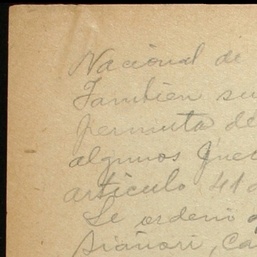 Nacional de
Tambien su
permuta de
algunos
articulo 41 d
Se ordenó a